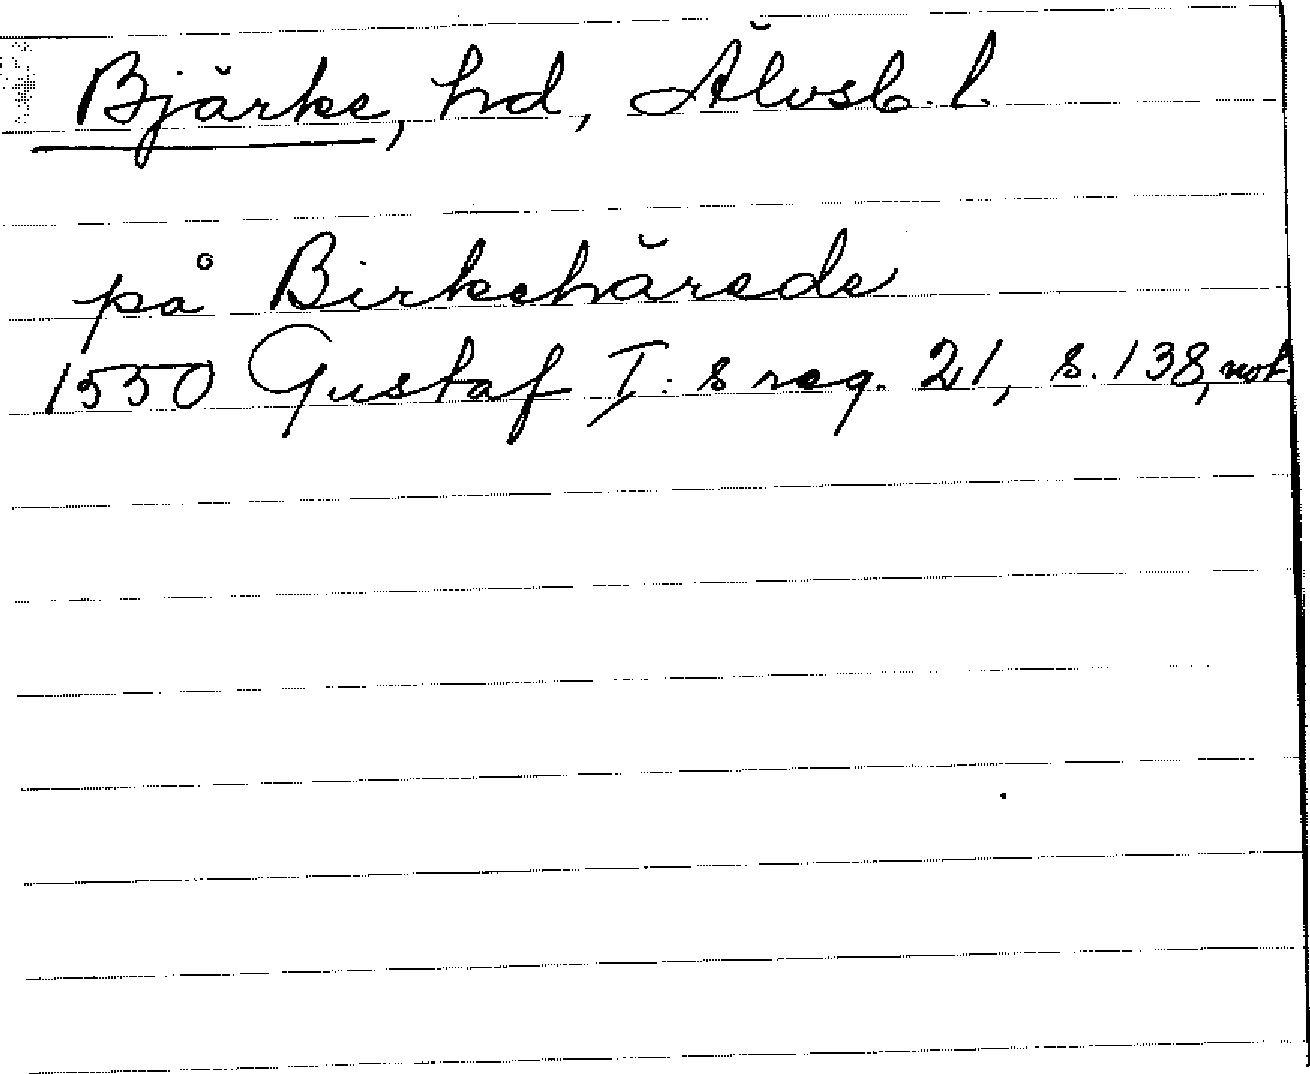 Bjärke, hd, Älvsb. l
på Birkehärede
1550 Gustaf I:s reg. 21, s. 138, not